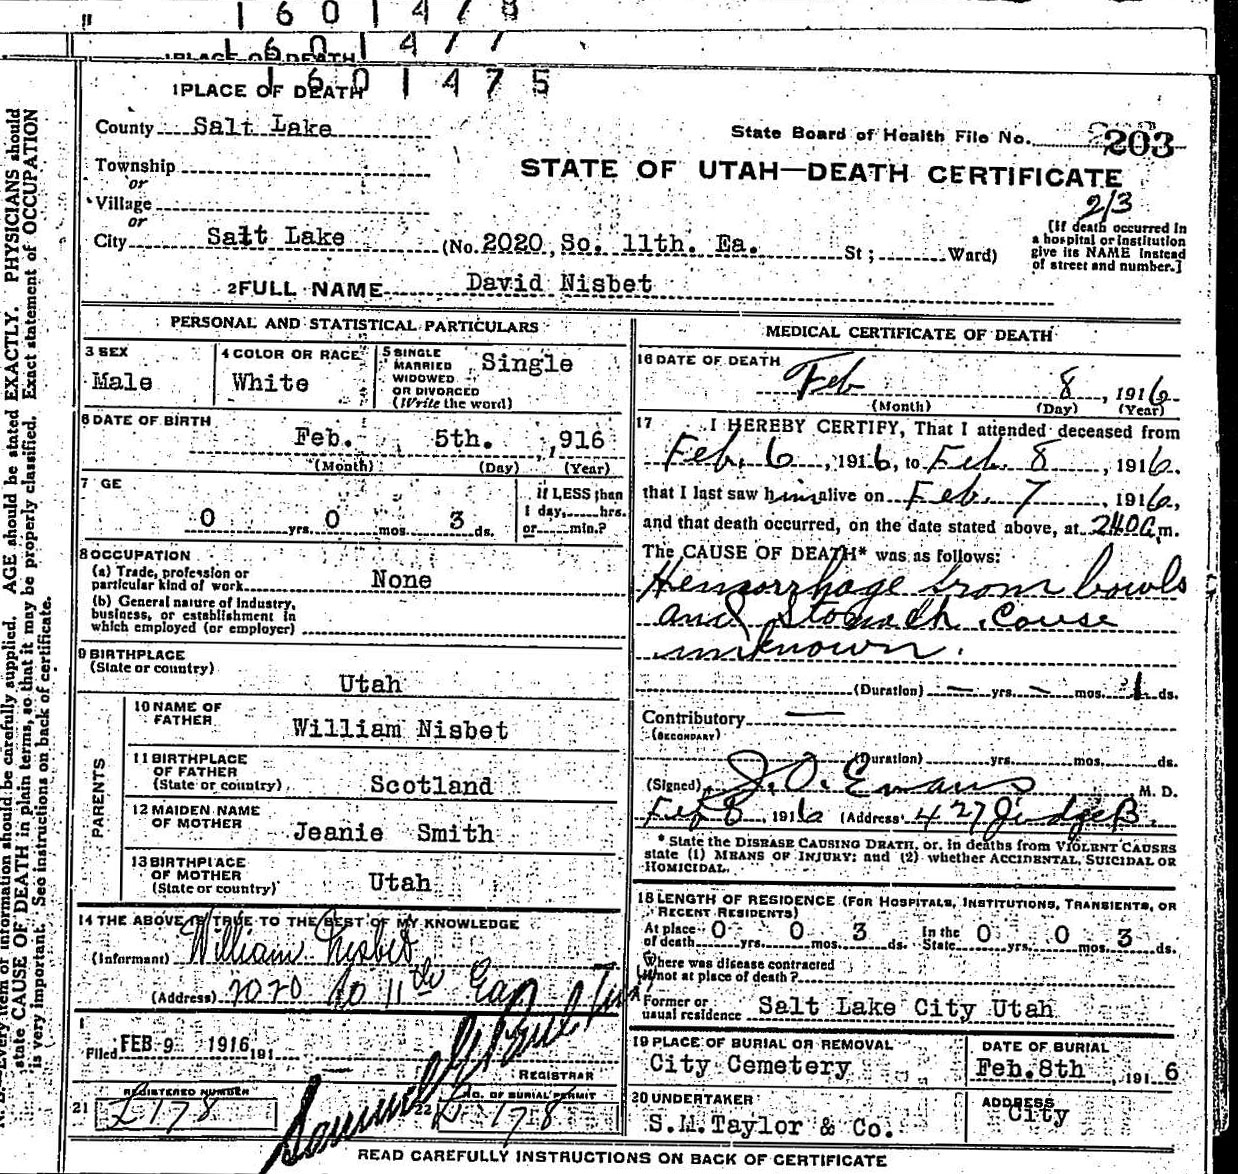 1601478
1601477
1 PLACE OF DEATH
1601475
1 PLACE OF DEATH
County Salt Lake
State Board of Health File No. 203
Township
or
STATE OF UTAH—DEATH CERTIFICATE
213
Village
or
City Salt Lake (No. 2020 So. 11th. Ea. St ; Ward)
[If death occurred in
a hospital or institution
give its NAME instead
of street and number.]
2 FULL NAME David Nisbet
PERSONAL AND STATISTICAL PARTICULARS
3 SEX
Male
4 COLOR OR RACE
White
5 SINGLE
MARRIED
WIDOWED
OR DIVORCED
(Write the word)
Single
6 DATE OF BIRTH
Feb. 5th. ,916
(Month) (Day) (Year)
7 GE
0 yrs. 0 mos. 3 ds.
If LESS than
1 day, hrs.
or min.?
8 OCCUPATION
(a) Trade, profession or
particular kind of work None
(b) General nature of Industry,
business, or establishment in
which employed (or employer)
9 BIRTHPLACE
(State or country)
Utah
PARENTS
10 NAME OF
FATHER
William Nisbet
11 BIRTHPLACE
OF FATHER
(State or country) Scotland
12 MAIDEN NAME
OF MOTHER Jeanie Smith
13 BIRTHPLACE
OF MOTHER
(State or country) Utah
14 THE ABOVE IS TRUE TO THE BEST OF MY KNOWLEDGE
(Informant) William Nisbet
(Address) 2020 So 11th East
Filed FEB 9 1916 191
REGISTRAR
REGISTERED NUMBER
21 178
22 NO. OF BURIAL PERMIT
178
MEDICAL CERTIFICATE OF DEATH
16 DATE OF DEATH
Feb 8, 1916
(Month) (Day) (Year)
17 I HEREBY CERTIFY, That I attended deceased from
Feb. 6, 1916, to Feb. 8, 1916.
that I last saw him alive on Feb. 7, 1916,
and that death occurred, on the date stated above, at 240a m.
The CAUSE OF DEATH* was as follows:
Hemorrhage from bowls
and Stomach. Couse
unknown.
(Duration) — yrs. — mos. 1 ds.
Contributory —
(SECONDARY)
(Duration) yrs. mos. ds.
(Signed) J. O. Evans M. D.
Feb 8, 1916 (Address) 427 Judge B.
* State the DISEASE CAUSING DEATH, or, in deaths from VIOLENT CAUSES
state (1) MEANS OF INJURY; and (2) whether ACCIDENTAL, SUICIDAL OR
HOMICIDAL.
18 LENGTH OF RESIDENCE (FOR HOSPITALS, INSTITUTIONS, TRANSIENTS, OR
RECENT RESIDENTS)
At place
of death 0 yrs. 0 mos. 3 ds. In the
State 0 yrs. 0 mos. 3 ds.
Where was disease contracted
if not at place of death?
Former or
usual residence Salt Lake City Utah
19 PLACE OF BURIAL OR REMOVAL
City Cemetery
DATE OF BURIAL
Feb. 8th , 191 6
20 UNDERTAKER
S.M. Taylor & Co.
ADDRESS
City
READ CAREFULLY INSTRUCTIONS ON BACK OF CERTIFICATE
Every item of information should be carefully supplied. AGE should be stated EXACTLY. PHYSICIANS should
state CAUSE OF DEATH in plain terms, so that it may be properly classified. Exact statement of OCCUPATION
is very important. See instructions on back of certificate.